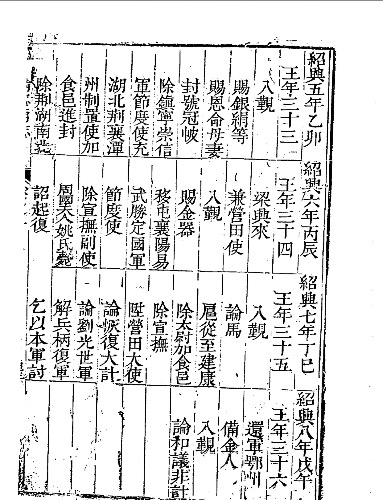 紹興五年乙卯
王年三十三
入覲
賜銀絹等
賜恩命母妻
封號冠帔
除鎮寧崇信
軍節度使充
湖北荊襄潭
州制置使加
食邑進封
除荊湖南
紹興六年丙辰
王年三十四
梁興來
兼營田使
入覲
賜金器
移屯襄陽易
武勝定國軍
節度使
除宣撫副使
周國夫人姚氏薨
詔起復
紹興七年丁巳
王年三十五
入覲
論馬
扈從至建康
除太尉加食邑
除宣撫
陞營田大使
論恢復大計
論劉光世軍
解兵柄復軍
乞以本軍討
紹興八年戊午
王年三十六
還軍鄂州
備金人
入覲
論和議非計